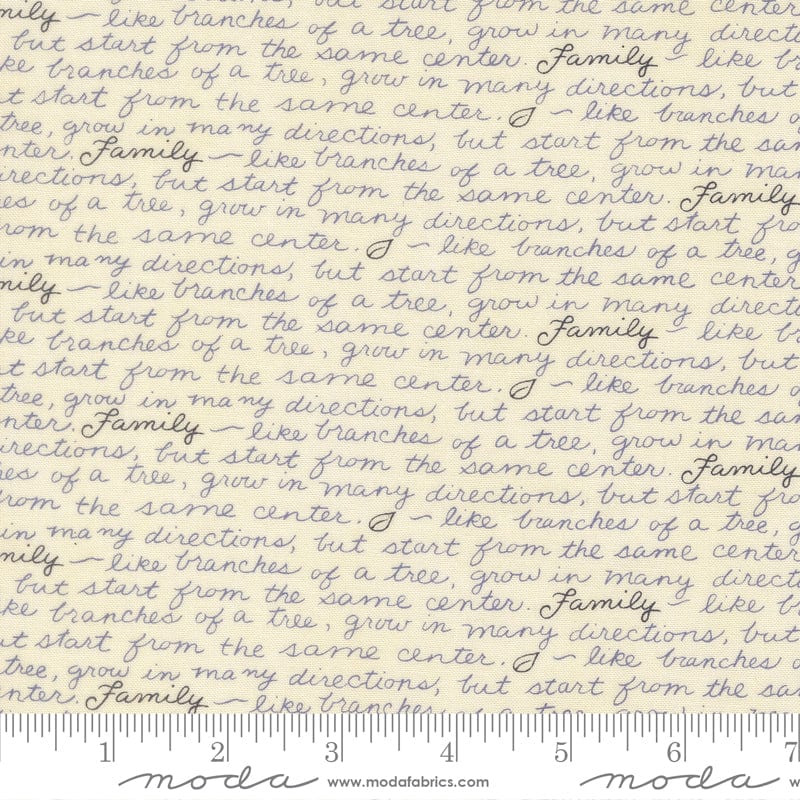 but start from the same center
mily – like branches of a tree, grow in many directi
but start from the same center. Family – like br
ke branches of a tree, grow in many directions, but
t start from the same center. – like branches o
tree, grow in many directions, but start from the sam
nter. Family – like branches of a tree, grow in man
irections, but start from the same center. Family
es of a tree, grow in many directions, but start fro
rom the same center. – like branches of a tree, g
in many directions, but start from the same center
mily – like branches of a tree, grow in many directi
but start from the same center. Family – like br
ke branches of a tree, grow in many directions, but
t start from the same center. – like branches o
tree, grow in many directions, but start from the sam
nter. Family – like branches of a tree, grow in man
irections, but start from the same center. Family
hes of a tree, grow in many directions, but start fro
from the same center. – like branches of a tree, g
in many directions, but start from the same center
mily – like branches of a tree, grow in many directi
but start from the same center. Family – like br
ke branches of a tree, grow in many directions, but
ut start from the same center. – like branches o
tree, grow in many directions, but start from the sam
nter. Family – like branches of a tree, grow in man
1 2 3 4 5 6 7
moda www.modafabrics.com moda w